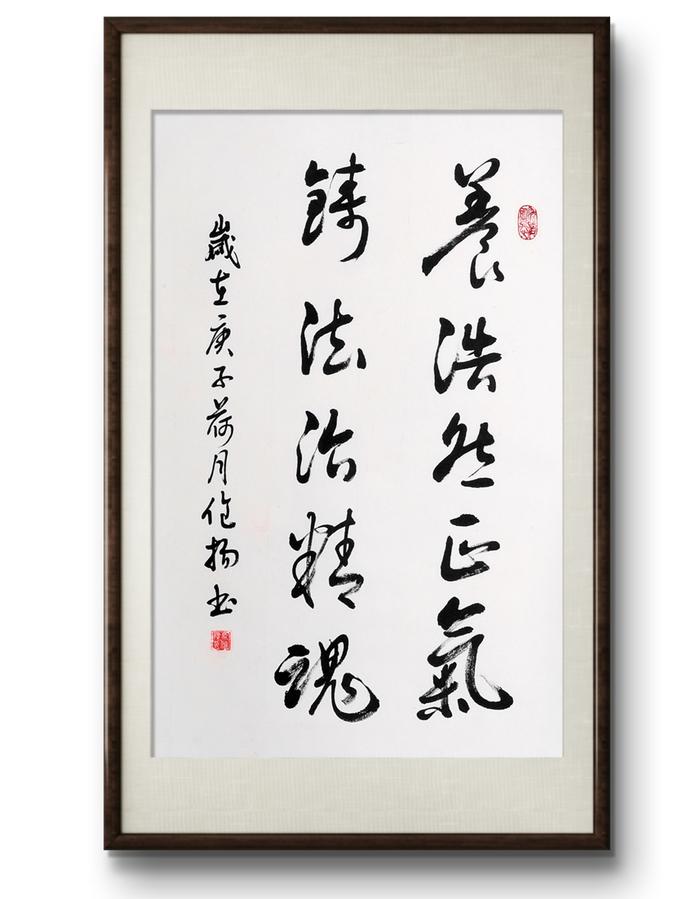 養浩然正氣
鑄法治精魂
歲在庚子荷月 揚書